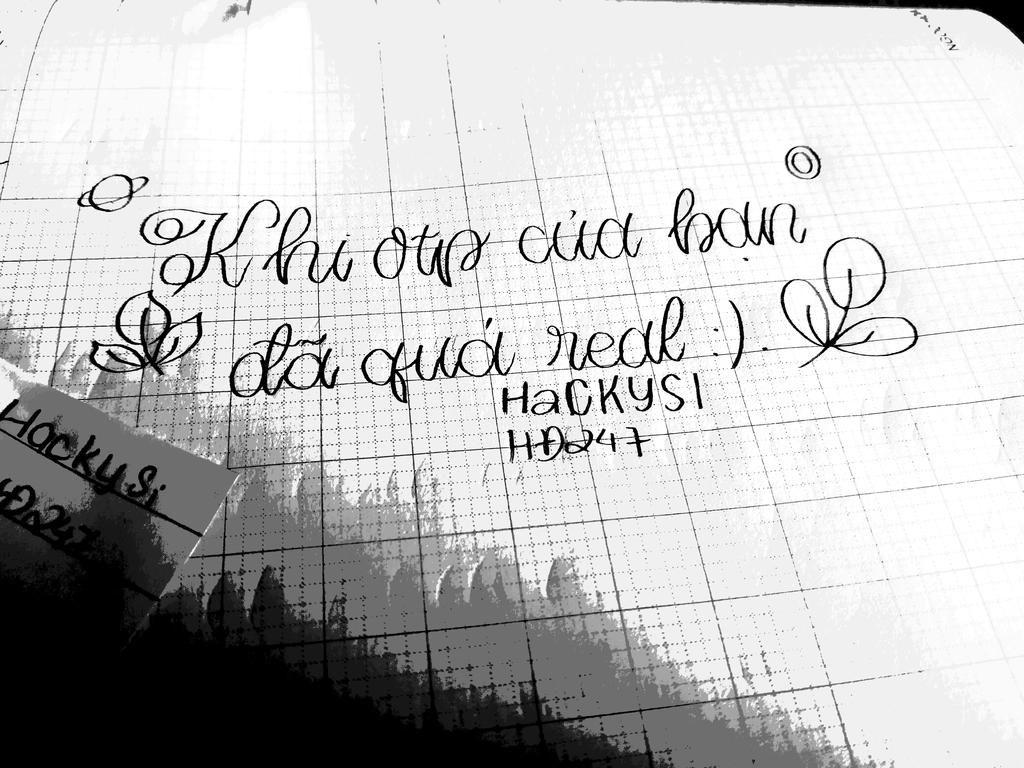 Khi otp của bạn
đã quá real :).
HaCKYSI
HĐ247
Hackysi
HĐ247